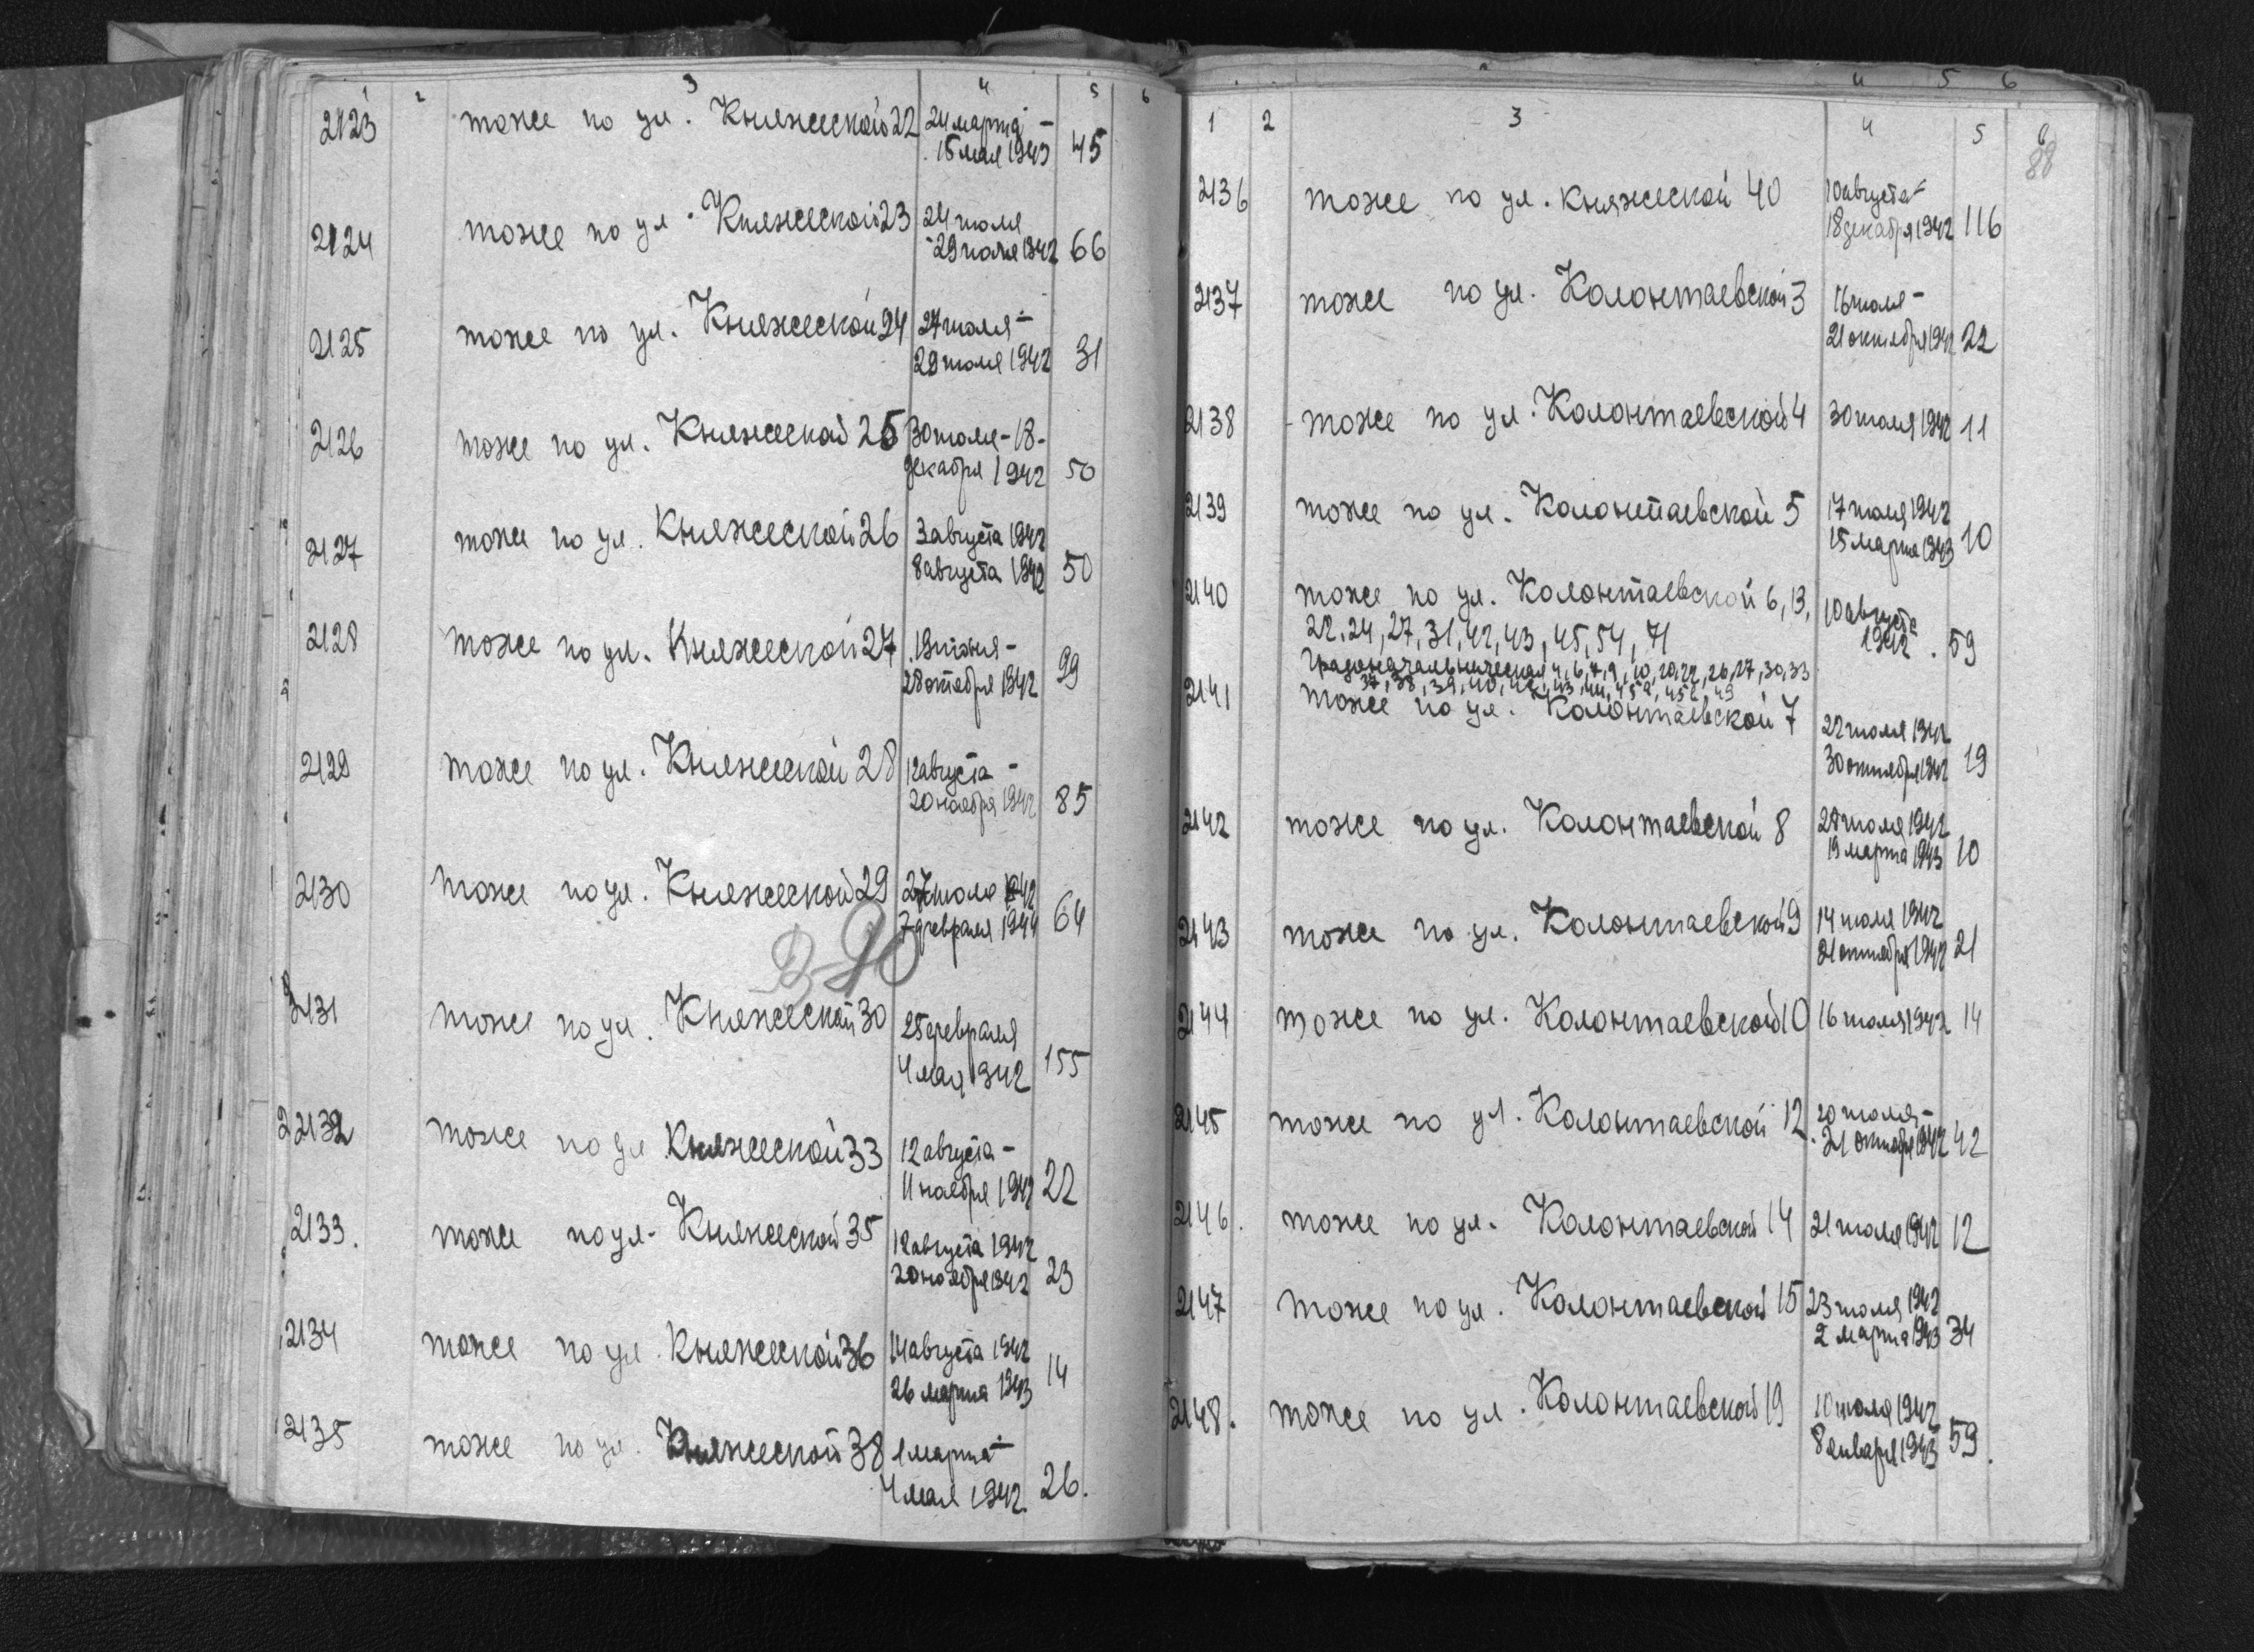 1 2 3 4 5 6
2123 тоже по ул. Княжеской 22 24 марта - 45
15 мая 1943
2124 тоже по ул. Княжеской 23 24 июля 66
- 29 июля 1942
2125 тоже по ул. Княжеской 24 27 июля - 31
29 июля 1942
2126 тоже по ул. Княжеской 25 30 июля - 18 - 50
декабря 1942
2127 тоже по ул. Княжеской 26 3 августа 1942 50
8 августа 1942
2128 тоже по ул. Княжеской 27 19 июня - 99
28 октября 1942
2129 тоже по ул. Княжеской 28 12 августа - 85
20 ноября 1942
2130 тоже по ул. Княжеской 29 27 июля 1942 64
7 февраля 1944
2131 тоже по ул. Княжеской 30 25 февраля 155
4 мая 1942
2132 тоже по ул. Княжеской 33 12 августа - 22
11 ноября 1942
2133. тоже по ул. Княжеской 35 12 августа 1942 23
20 ноября 1942
2134 тоже по ул. Княжеской 36 14 августа 1942 14
26 марта 1943
2135 тоже по ул. Княжеской 38 1 марта - 26.
4 мая 1942
4 5 6
1 2 3 4 5 6
88
2136 тоже по ул. Княжеской 40 10 августа - 116
18 декабря 1942
2137 тоже по ул. Колонтаевской 3 16 июля - 22
21 октября 1942
2138 тоже по ул. Колонтаевской 4 30 июля 1942 11
2139 тоже по ул. Колонтаевской 5 17 июля 1942 10
15 марта 1943
2140 тоже по ул. Колонтаевской 6, 13, 10 августа
22, 24, 27, 31, 42, 43, 45, 54, 71 1942. 59
Градоначальническая 4, 6, 7, 9, 10, 20, 22, 26, 27, 30, 33
37, 38, 39, 40, 42, 43, 44, 45а, 45б, 49
2141 тоже по ул. Колонтаевской 7 22 июля 1942 19
30 октября 1942
2142 тоже по ул. Колонтаевской 8 27 июля 1942 10
19 марта 1943
2143 тоже по ул. Колонтаевской 9 14 июля 1942 21
21 октября 1942
2144 тоже по ул. Колонтаевской 10 16 июля 1942 14
2145 тоже по ул. Колонтаевской 12 20 июля - 42
21 октября 1942
2146. тоже по ул. Колонтаевской 14 21 июля 1942 12
2147 тоже по ул. Колонтаевской 15 23 июля 1942 34
2 марта 1943
2148. тоже по ул. Колонтаевской 19 10 июля 1942 59.
8 января 1943